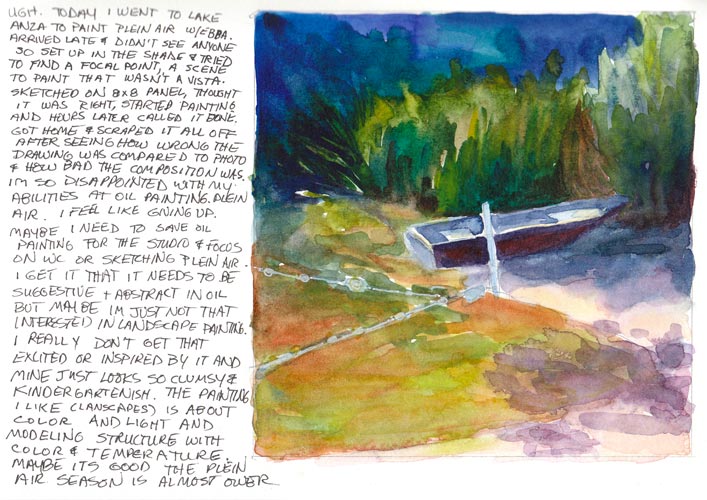 UGH. TODAY I WENT TO LAKE
ANZA TO PAINT PLEIN AIR W/EBBA.
ARRIVED LATE & DIDN'T SEE ANYONE
SO SET UP IN THE SHADE & TRIED
TO FIND A FOCAL POINT, A SCENE
TO PAINT THAT WASN'T A VISTA.
SKETCHED ON 8x8 PANEL, THOUGHT
IT WAS RIGHT, STARTED PAINTING
AND HOURS LATER CALLED IT DONE.
GOT HOME & SCRAPED IT ALL OFF
AFTER SEEING HOW WRONG THE
DRAWING WAS COMPARED TO PHOTO
& HOW BAD THE COMPOSITION WAS.
I'M SO DISAPPOINTED WITH MY
ABILITIES AT OIL PAINTING PLEIN
AIR. I FEEL LIKE GIVING UP.
MAYBE I NEED TO SAVE OIL
PAINTING FOR THE STUDIO & FOCUS
ON WC OR SKETCHING PLEIN AIR.
I GET IT THAT IT NEEDS TO BE
SUGGESTIVE + ABSTRACT IN OIL
BUT MAYBE I'M JUST NOT THAT
INTERESTED IN LANDSCAPE PAINTING.
I REALLY DON'T GET THAT
EXCITED OR INSPIRED BY IT AND
MINE JUST LOOKS SO CLUMSY &
KINDERGARTENISH. THE PAINTING
I LIKE (LANSCAPES) IS ABOUT
COLOR AND LIGHT AND
MODELING STRUCTURE WITH
COLOR & TEMPERATURE.
MAYBE ITS GOOD THE PLEIN
AIR SEASON IS ALMOST OVER